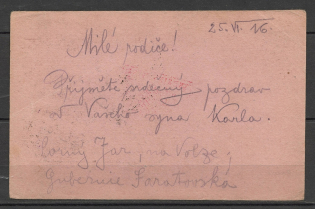 25. VI. 16.
Milé rodiče!
Přijměte srdečný pozdrav
od Vašeho syna Karla.
Černý Jar, na Volze,
Gubernie Saratovská